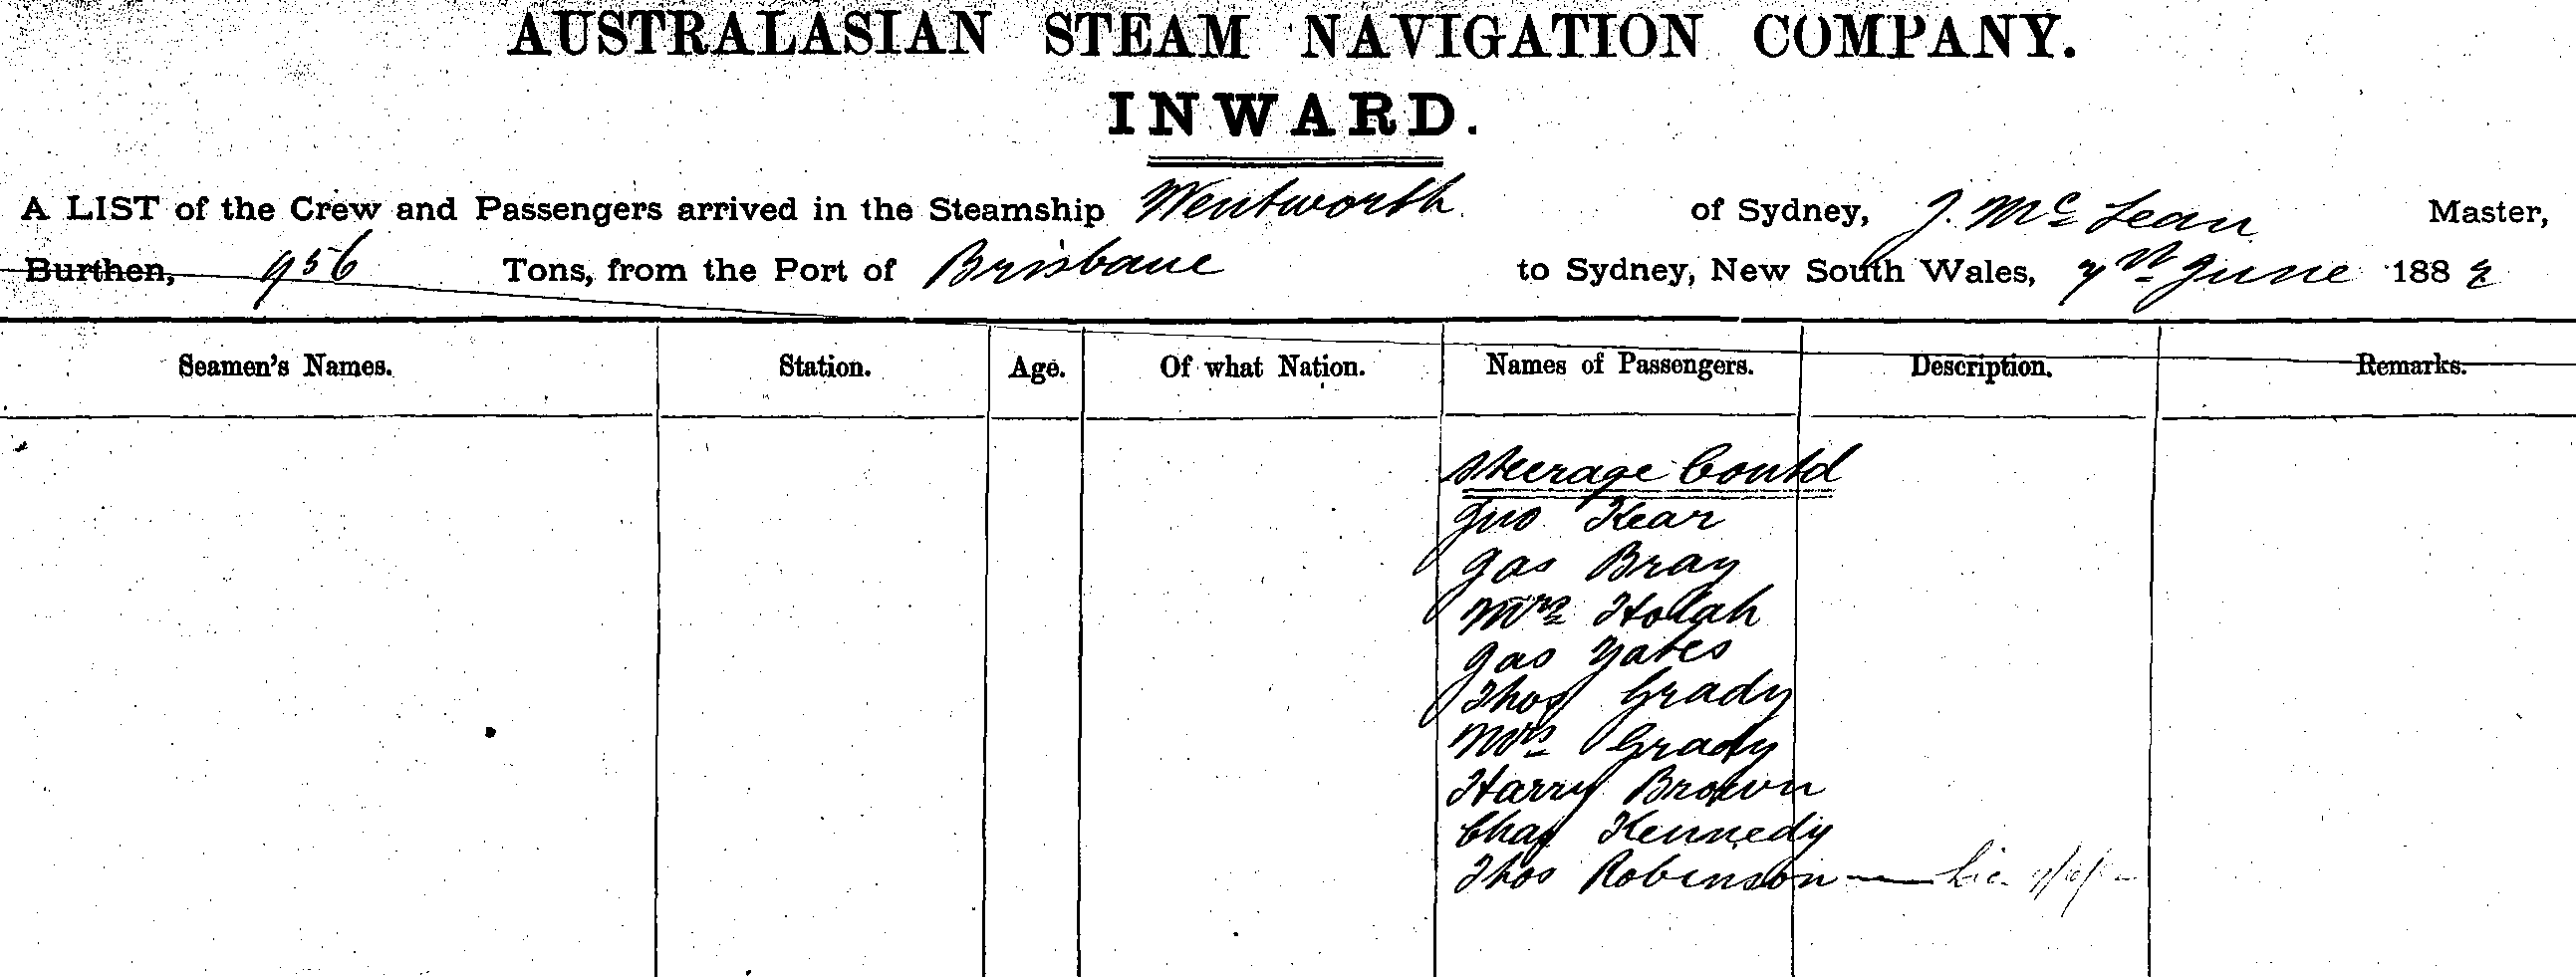 AUSTRALASIAN STEAM NAVIGATION COMPANY.
INWARD.
A LIST of the Crew and Passengers arrived in the Steamship Wentworth of Sydney, J. McLean Master,
Burthen, 956 Tons, from the Port of Brisbane to Sydney, New South Wales, 7th June 1882
Seamen's Names. Station. Age. Of what Nation. Names of Passengers. Description. Remarks.
Steerage Contd
Jno Kear
Jas Bray
Mrs Holah
Jas Yates
Thos Grady
Mrs Grady
Harry Brown
Chas Kennedy
Thos Robinson